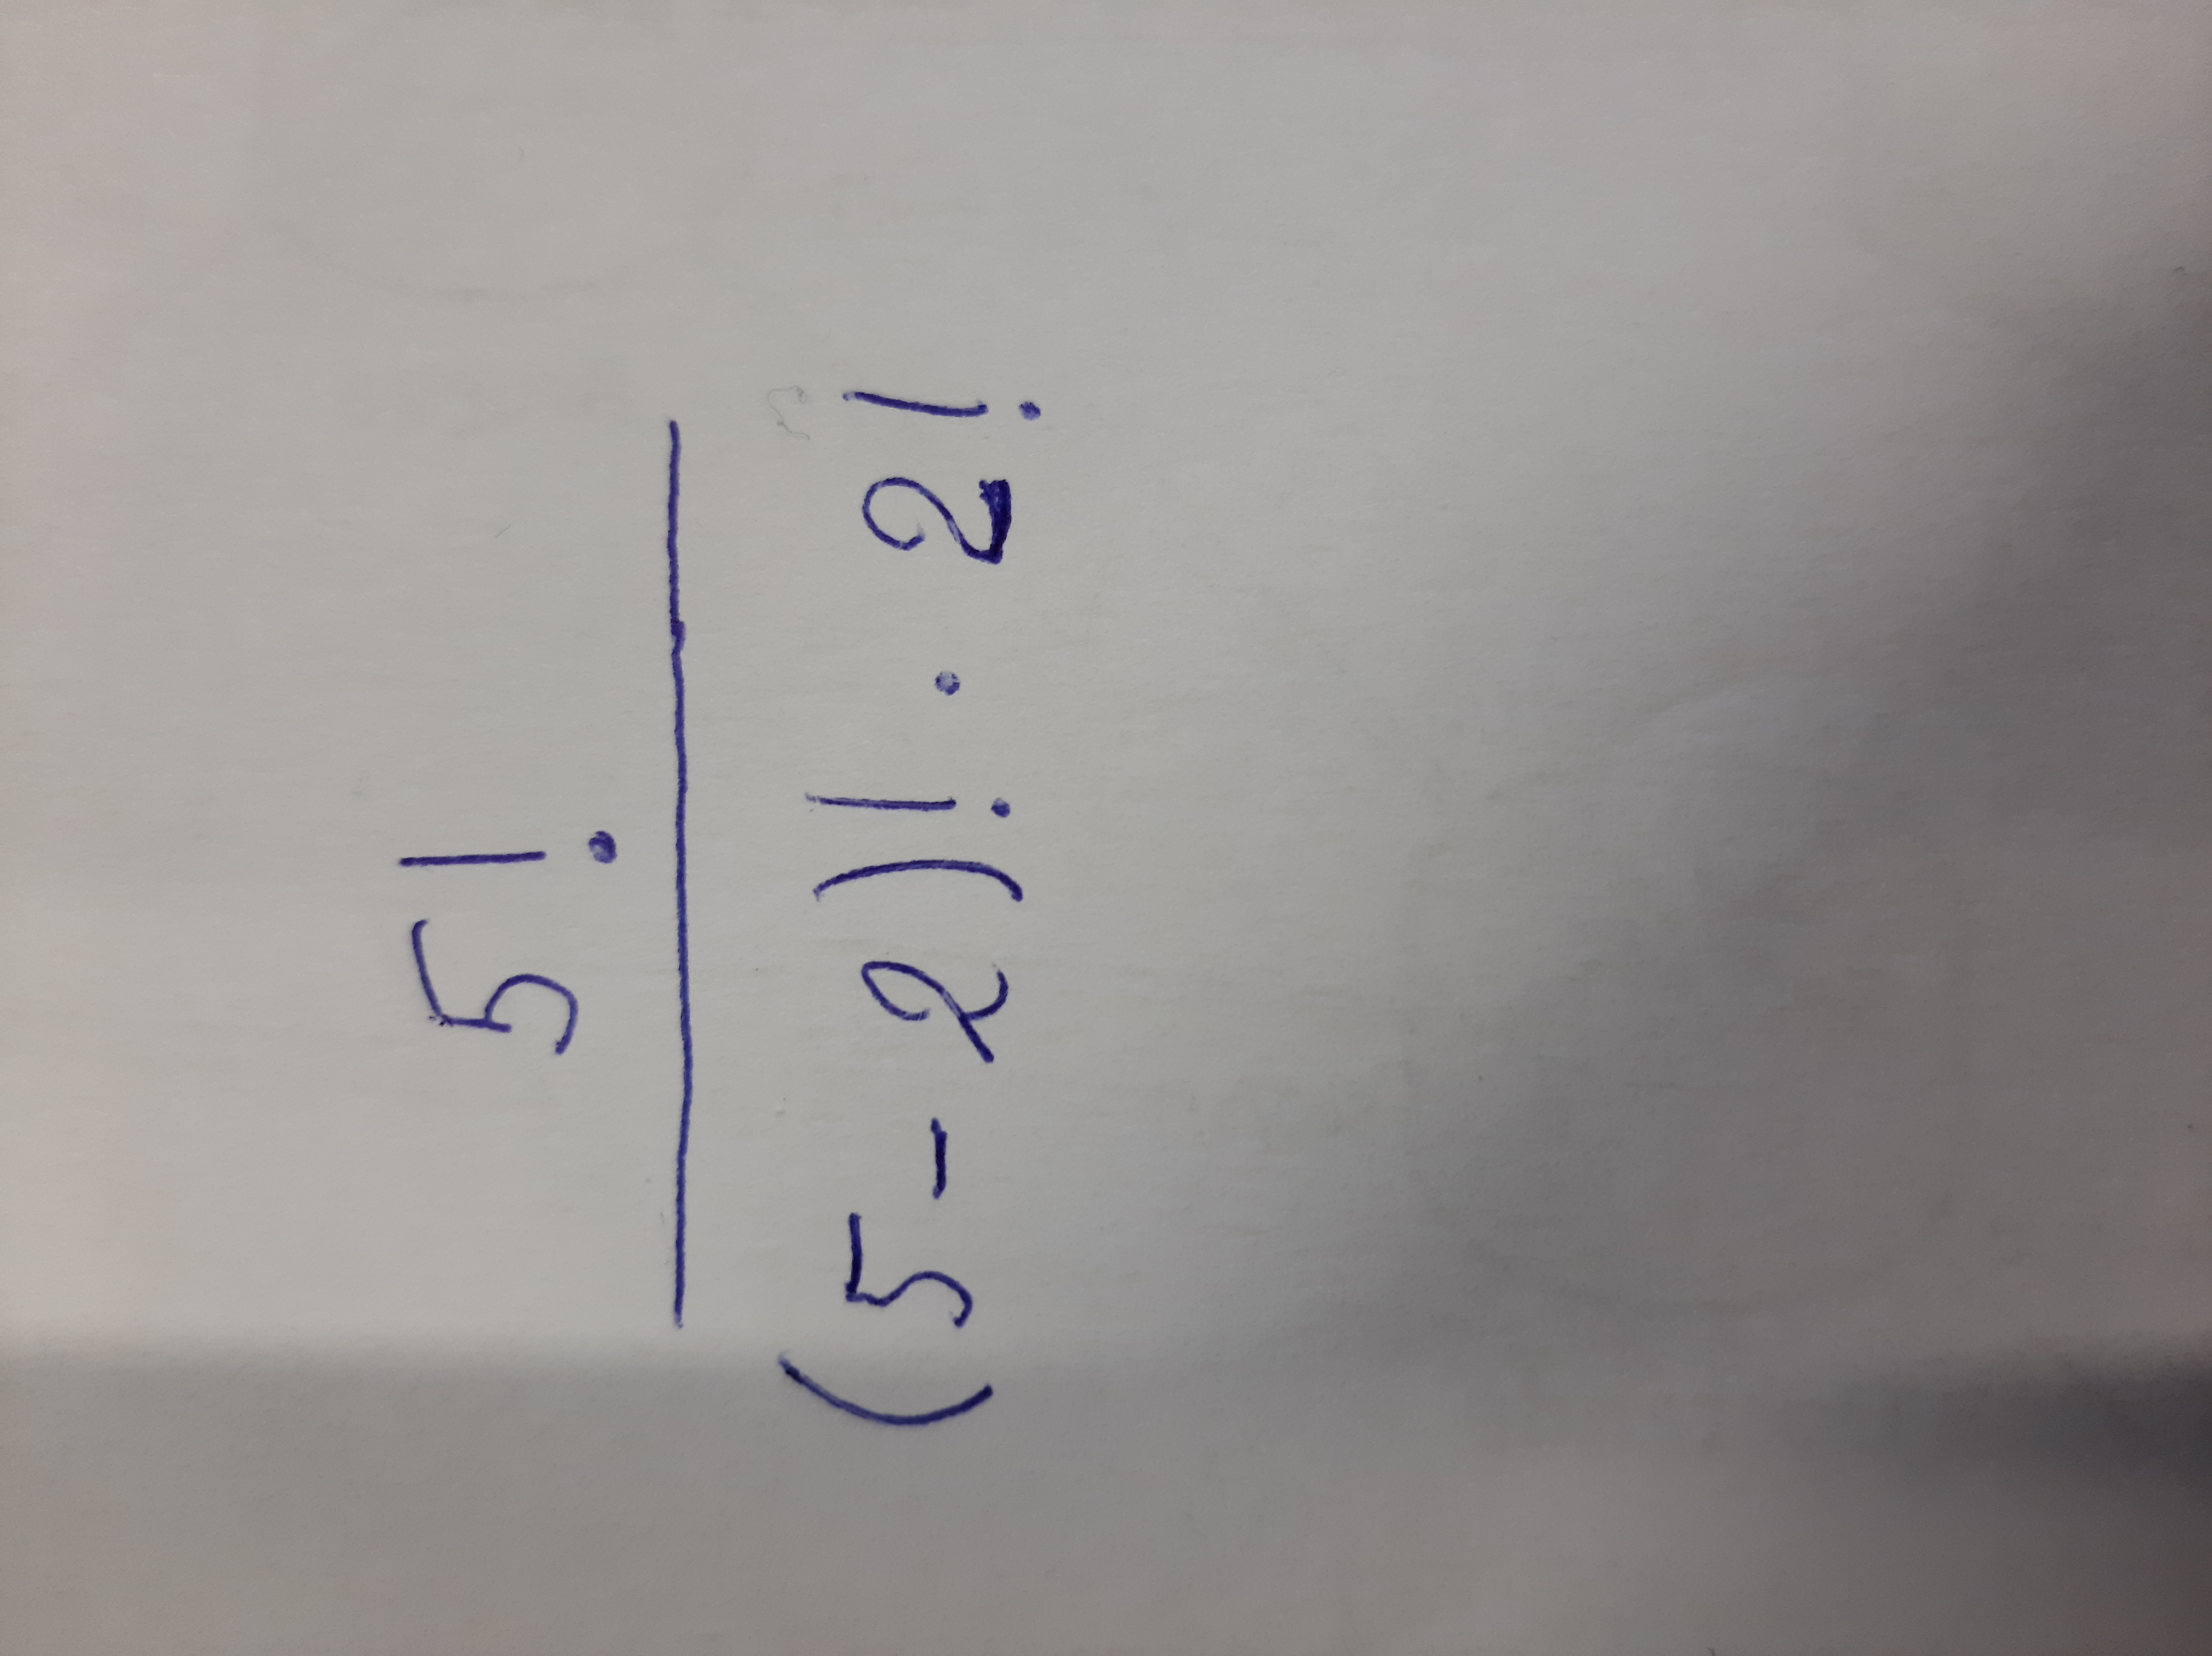 5!
(5-2)! · 2!